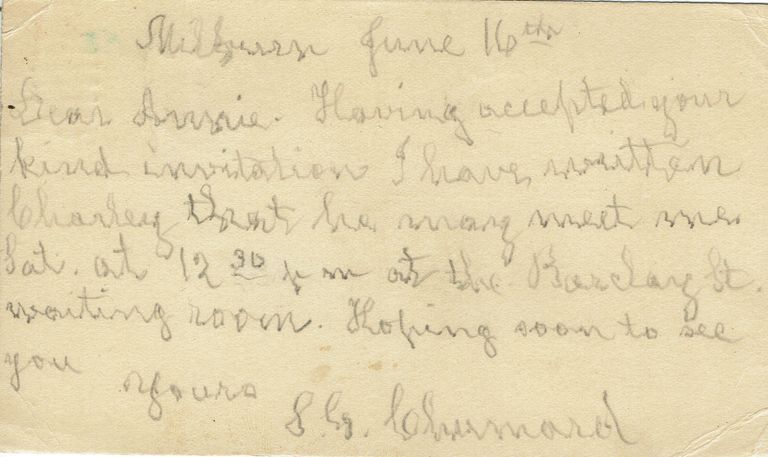 Milburn June 16th
Dear Annie. Having accepted your
kind invitation I have written
Charley that he may meet me
Sat. at 12 30 p m at the Barclay St.
waiting room. Hoping soon to see
you
Yours
S. G. Chumard